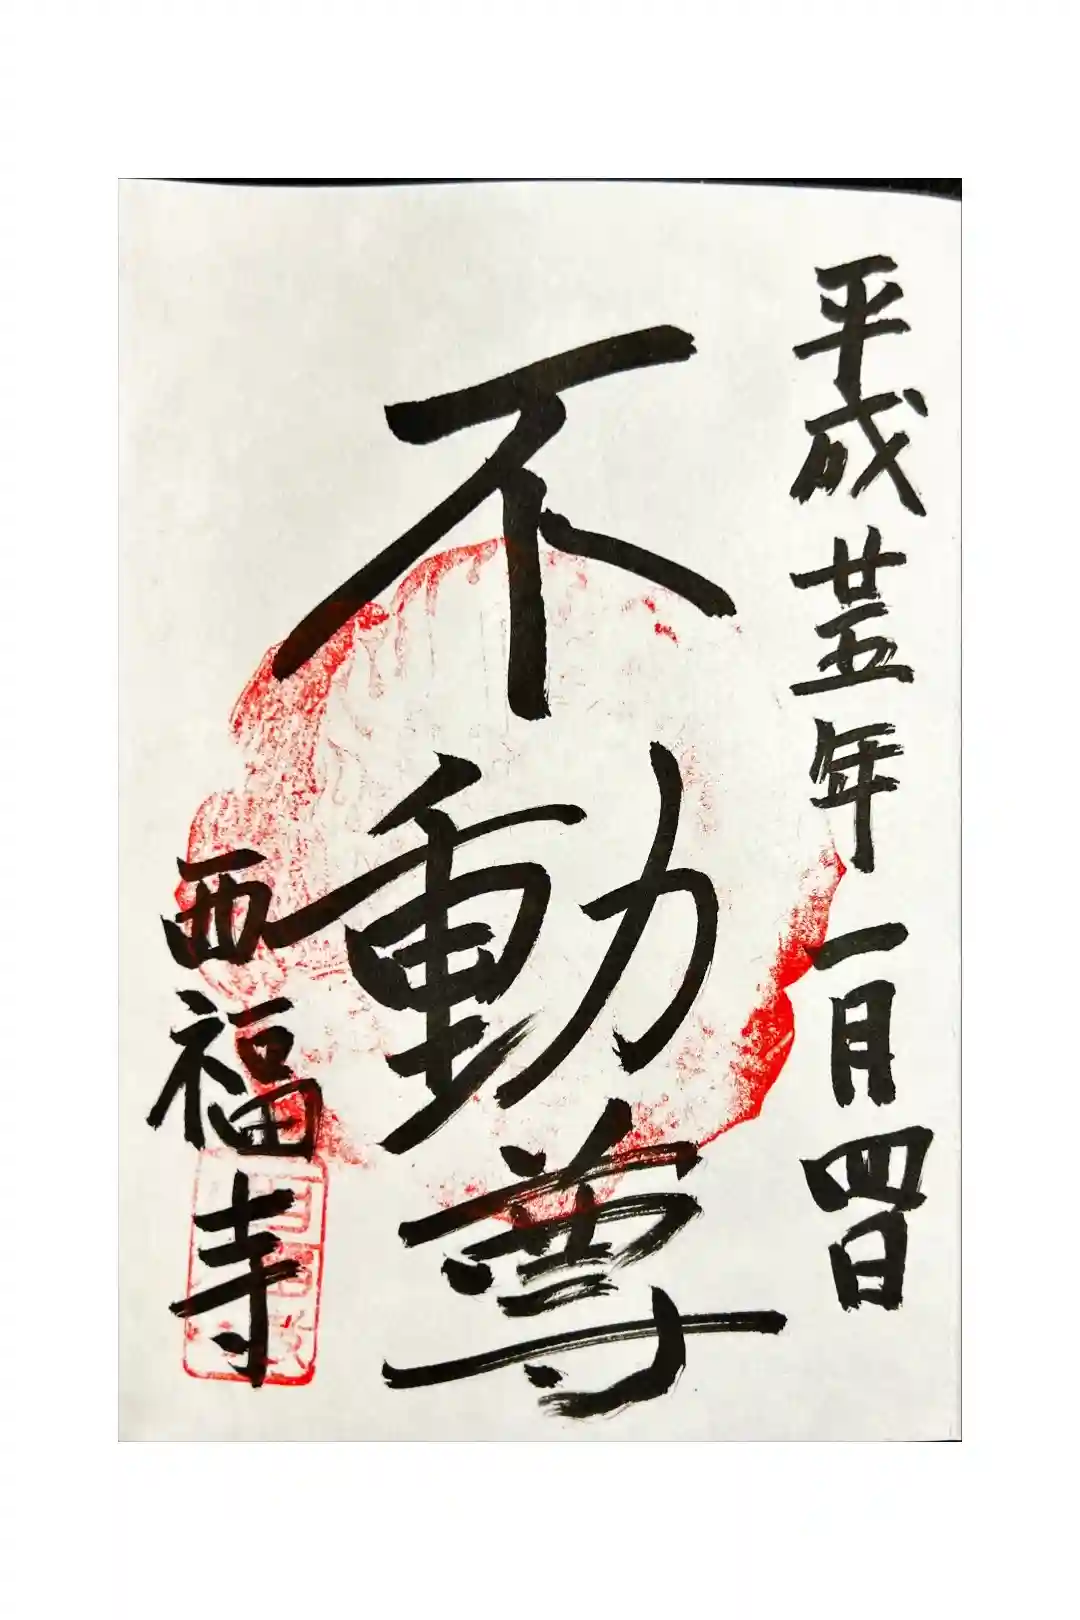 平成廿五年一月四日
不動尊
西福寺